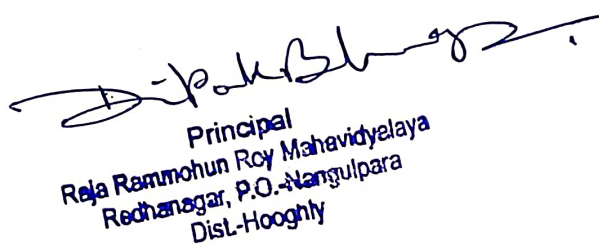 Principal
Raja Rammohun Roy Mahavidyalaya
Radhanagar, P.O.-Nangulpara
Dist.-Hooghly